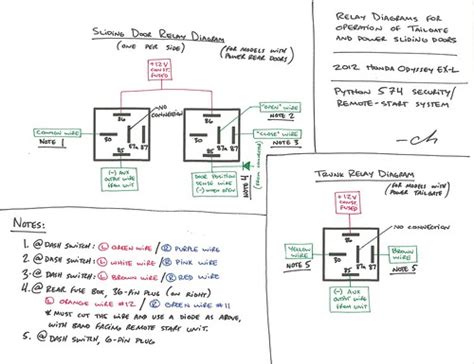 SLIDING DOOR RELAY DIAGRAM
(ONE PER SIDE)
(FOR MODELS WITH
POWER REAR DOORS)
+12V
CONST.
FUSED
NO
CONNECTION
"OPEN" WIRE
NOTE 2
"CLOSE" WIRE
NOTE 3
COMMON WIRE
NOTE 1
86
30
87a
87
85
86
30
87a
87
85
(-) AUX
OUTPUT WIRE
FROM UNIT
DOOR POSITION
SENSE WIRE
(-) WHEN OPEN
NOTE 4
RELAY DIAGRAMS FOR
OPERATION OF TAILGATE
AND POWER SLIDING DOORS
2012 HONDA ODYSSEY EX-L
PYTHON 574 SECURITY/
REMOTE-START SYSTEM
NOTES:
1. @ DASH SWITCH: L GREEN WIRE / R PURPLE WIRE
2. @ DASH SWITCH: L WHITE WIRE / R PINK WIRE
3. @ DASH SWITCH: L BROWN WIRE / R RED WIRE
4. @ REAR FUSE BOX, 36-PIN PLUG (ON RIGHT)
L ORANGE WIRE #12 / R GREEN WIRE #11
* MUST CUT THE WIRE AND USE A DIODE AS ABOVE,
WITH BAND FACING REMOTE START UNIT.
5. @ DASH SWITCH, 6-PIN PLUG
TRUNK RELAY DIAGRAM
(FOR MODELS WITH
POWER TAILGATE)
+12V
CONST.
FUSED
NO CONNECTION
YELLOW
WIRE
NOTE 5
BROWN
WIRE
NOTE 5
86
30
87a
87
85
(-) AUX
OUTPUT WIRE
FROM UNIT